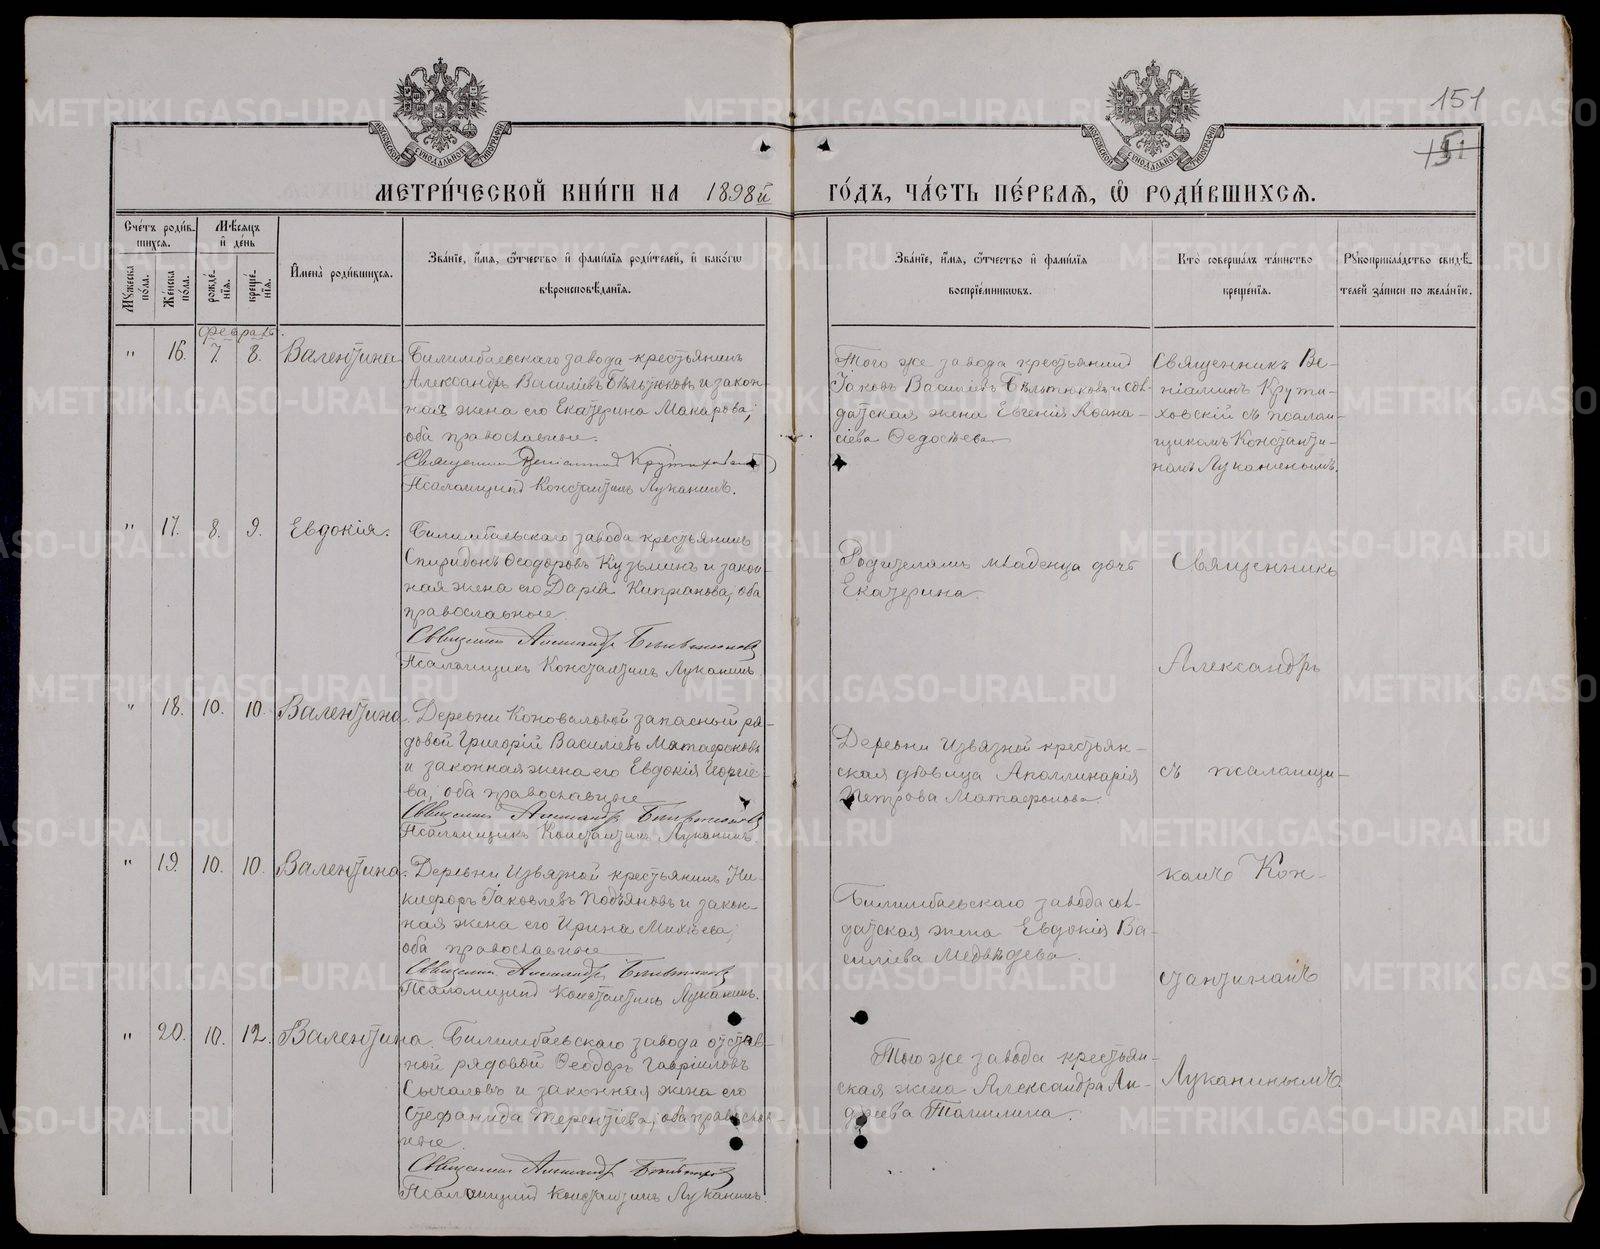 151
151
МОСКОВСКОЙ СѴНОДАЛЬНОЙ ТИПОГРАФІИ
МОСКОВСКОЙ СѴНОДАЛЬНОЙ ТИПОГРАФІИ
МЕТРИ́ЧЕСКОЙ КНИ́ГИ НА 1898й ГО́ДЪ, ЧА́СТЬ ПЕ́РВАЯ, Ѽ РОДИ́ВШИХСЯ.
Сче́тъ роди́в-
шихся.
Мꙋ́жеска по́ла.
Же́нска по́ла.
Мѣ́сяцъ и҆ де́нь
рожде́-
нїя.
креще́-
нїя.
И҆мена̀ роди́вшихся.
Зва́нїе, и҆́мя, ѻ҆́тчество и҆ фами́лїя роди́телей, и҆ како́гѡ
вѣроисповѣ́данїя.
Зва́нїе, и҆́мя, ѻ҆́тчество и҆ фами́лїя
воспрїе́мникѡвъ.
Кто̀ соверша́лъ та́инство
креще́нїя.
Рꙋкоприкла́дство свидѣ́-
телей за́писи по жела́нїю.
Февраль.
" 16. 7. 8. Валентина
Билимбаевскаго завода крестьянинъ
Александръ Василіевъ Бѣльтюковъ и закон-
ная жена его Екатерина Макарова;
оба православные.
Священникъ Веніаминъ Крутиховскій
Псаломщикъ Константинъ Луканинъ.
Того же завода крестьянинъ
Іаковъ Василіевъ Бѣльтюковъ и сол-
датская жена Евгенія Аѳана-
сіева Ѳедосѣева
Священникъ Ве-
ніаминъ Крути-
ховскій съ псалом-
щикомъ Константи-
номъ Луканинымъ.
" 17. 8. 9. Евдокія.
Билимбаевскаго завода крестьянинъ
Спиридонъ Ѳеодоровъ Кузьминъ и закон-
ная жена его Дарія Кипріанова; оба
православные.
Священникъ Александръ
Псаломщикъ Константинъ Луканинъ.
Родителямъ младенца дочь
Екатерина.
Священникъ
Александръ
" 18. 10. 10. Валентина.
Деревни Коноваловой запасный ря-
довой Григорій Василіевъ Матафоновъ
и законная жена его Евдокія Георгіе-
ва; оба православные
Священникъ Александръ
Псаломщикъ Константинъ Луканинъ.
Деревни Извязной крестьян-
ская дѣвица Аполлинарія
Петрова Матафонова.
съ псаломщи-
" 19. 10. 10. Валентина.
Деревни Извязной крестьянинъ Ни-
кифоръ Іаковлевъ Подъяновъ и закон-
ная жена его Ирина Михѣева;
оба православные
Священникъ Александръ
Псаломщикъ Константинъ Луканинъ.
Билимбаевскаго завода сол-
датская жена Евдокія Ва-
силіева Медвѣдева.
комъ Кон-
стантиномъ
" 20. 10. 12. Валентина.
Билимбаевскаго завода отстав-
ной рядовой Ѳеодоръ Гавріиловъ
Сычаловъ и законная жена его
Стефанида Терентіева; оба православ-
ные.
Священникъ Александръ
Псаломщикъ Константинъ Луканинъ.
Того же завода крестьян-
ская жена Александра Ан-
дреева Томилина.
Луканинымъ
METRIKI.GASO-URAL.RU